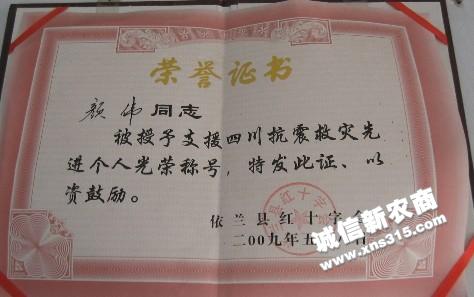 荣誉证书
颜伟同志
被授予支援四川抗震救灾先
进个人光荣称号，特发此证、以
资鼓励。
依兰县红十字会
二00九年五月 日
诚信新农商
www.xns315.com